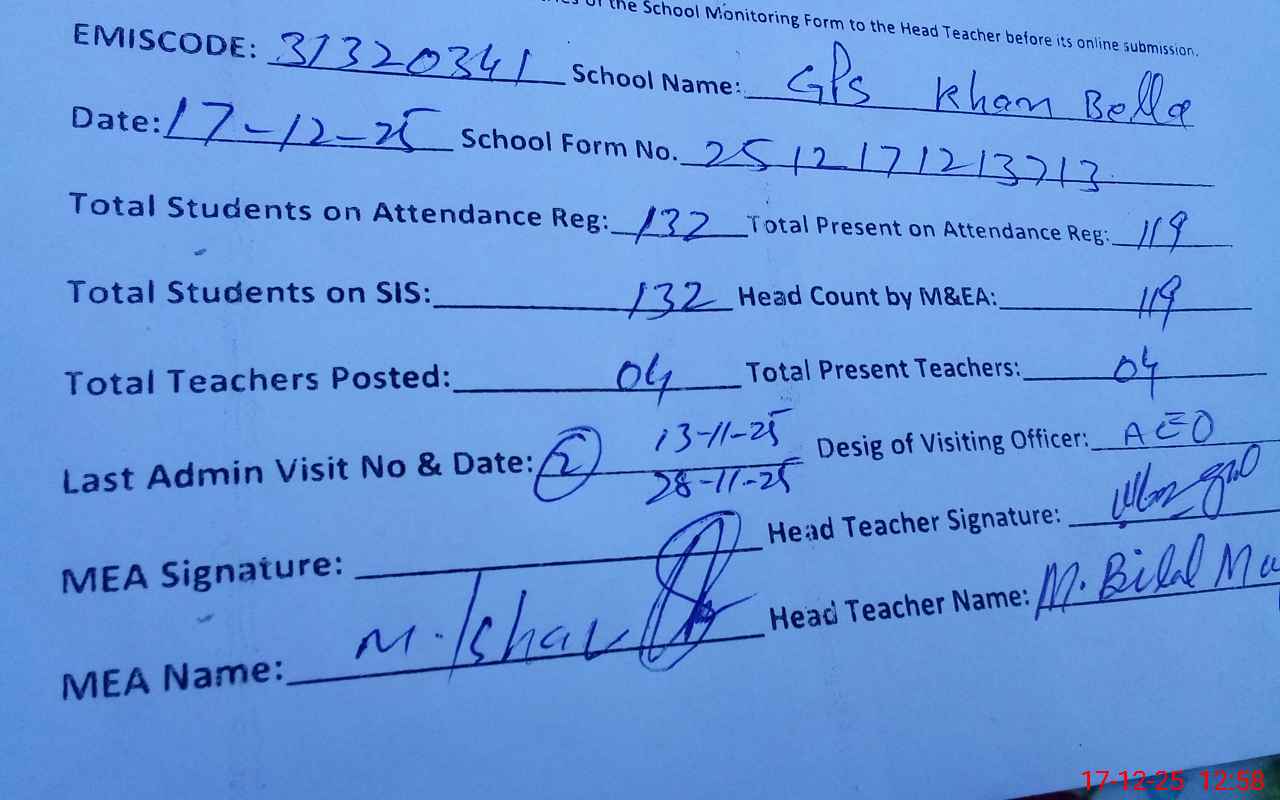 of the School Monitoring Form to the Head Teacher before its online submission.
EMISCODE: 31320341 School Name: GPS Khan Bella
Date: 17-12-25 School Form No. 2512171213713
Total Students on Attendance Reg: 132 Total Present on Attendance Reg: 119
Total Students on SIS: 132 Head Count by M&EA: 119
Total Teachers Posted: 04 Total Present Teachers: 04
Last Admin Visit No & Date: 2 13-11-25 28-11-25 Desig of Visiting Officer: AEO
MEA Signature: Head Teacher Signature:
MEA Name: M. Ishaq Head Teacher Name: M. Bilal Mu
17-12-25 12:58